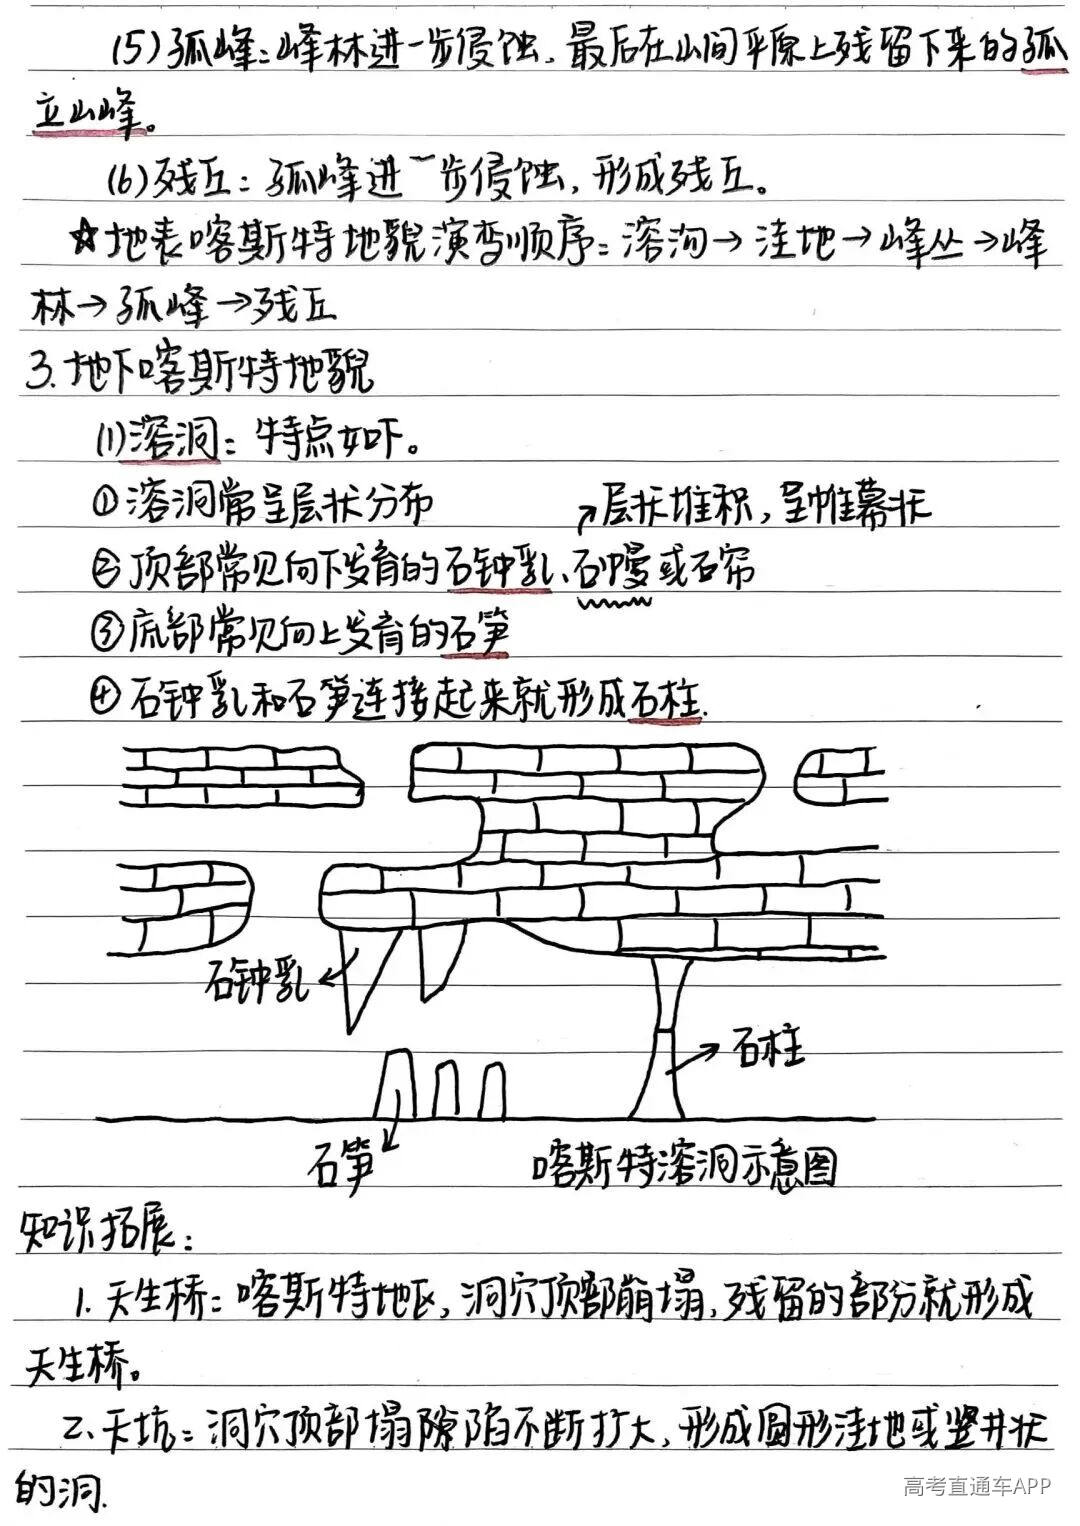 (5)孤峰:峰林进一步侵蚀,最后在山间平原上残留下来的孤
立山峰。
(6)残丘:孤峰进一步侵蚀,形成残丘。
☆地表喀斯特地貌演变顺序:溶沟→洼地→峰丛→峰
林→孤峰→残丘
3.地下喀斯特地貌
(1)溶洞:特点如下。
①溶洞常呈层状分布
↗层状堆积,呈帷幕状
②顶部常见向下发育的石钟乳、石幔或石帘
③底部常见向上发育的石笋
④石钟乳和石笋连接起来就形成石柱.
石钟乳
石柱
石笋
喀斯特溶洞示意图
知识拓展:
1.天生桥:喀斯特地区,洞穴顶部崩塌,残留的部分就形成
天生桥。
2.天坑:洞穴顶部塌隙陷不断扩大,形成圆形洼地或竖井状
的洞.
高考直通车APP